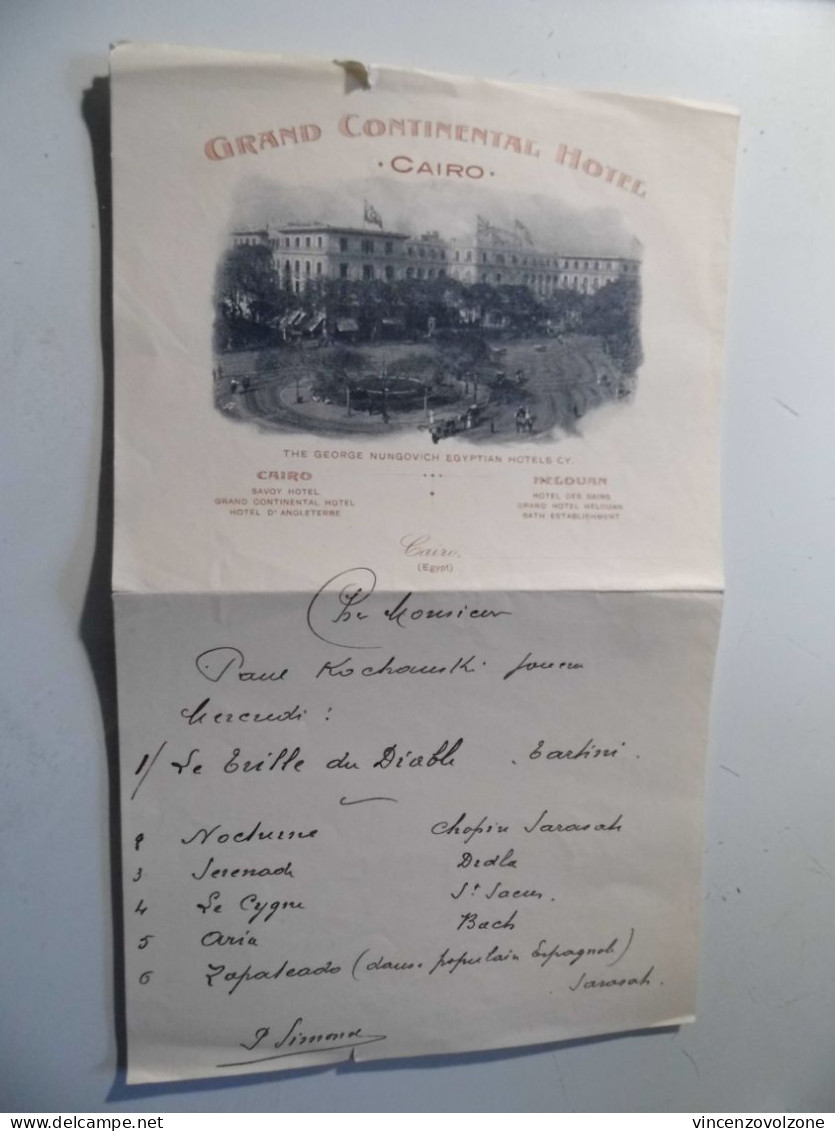 GRAND CONTINENTAL HOTEL
• CAIRO •
THE GEORGE NUNGOVICH EGYPTIAN HOTELS CY.
CAIRO
SAVOY HOTEL
GRAND CONTINENTAL HOTEL
HOTEL D'ANGLETERRE
HELOUAN
HOTEL DES BAINS
GRAND HOTEL HELOUAN
BATH ESTABLISHMENT
Cairo,
(Egypt)
Monsieur
Paul Kochanski jouera
Mercredi :
1/ Le Trille du Diable . Tartini .
2 Nocturne Chopin Sarasate
3 Serenade Drdla
4 Le Cygne St Saens .
5 Aria Bach
6 Zapateado (danse populaire Espagnole)
Sarasate .
P Simond
delcampe.net
vincenzovolzone